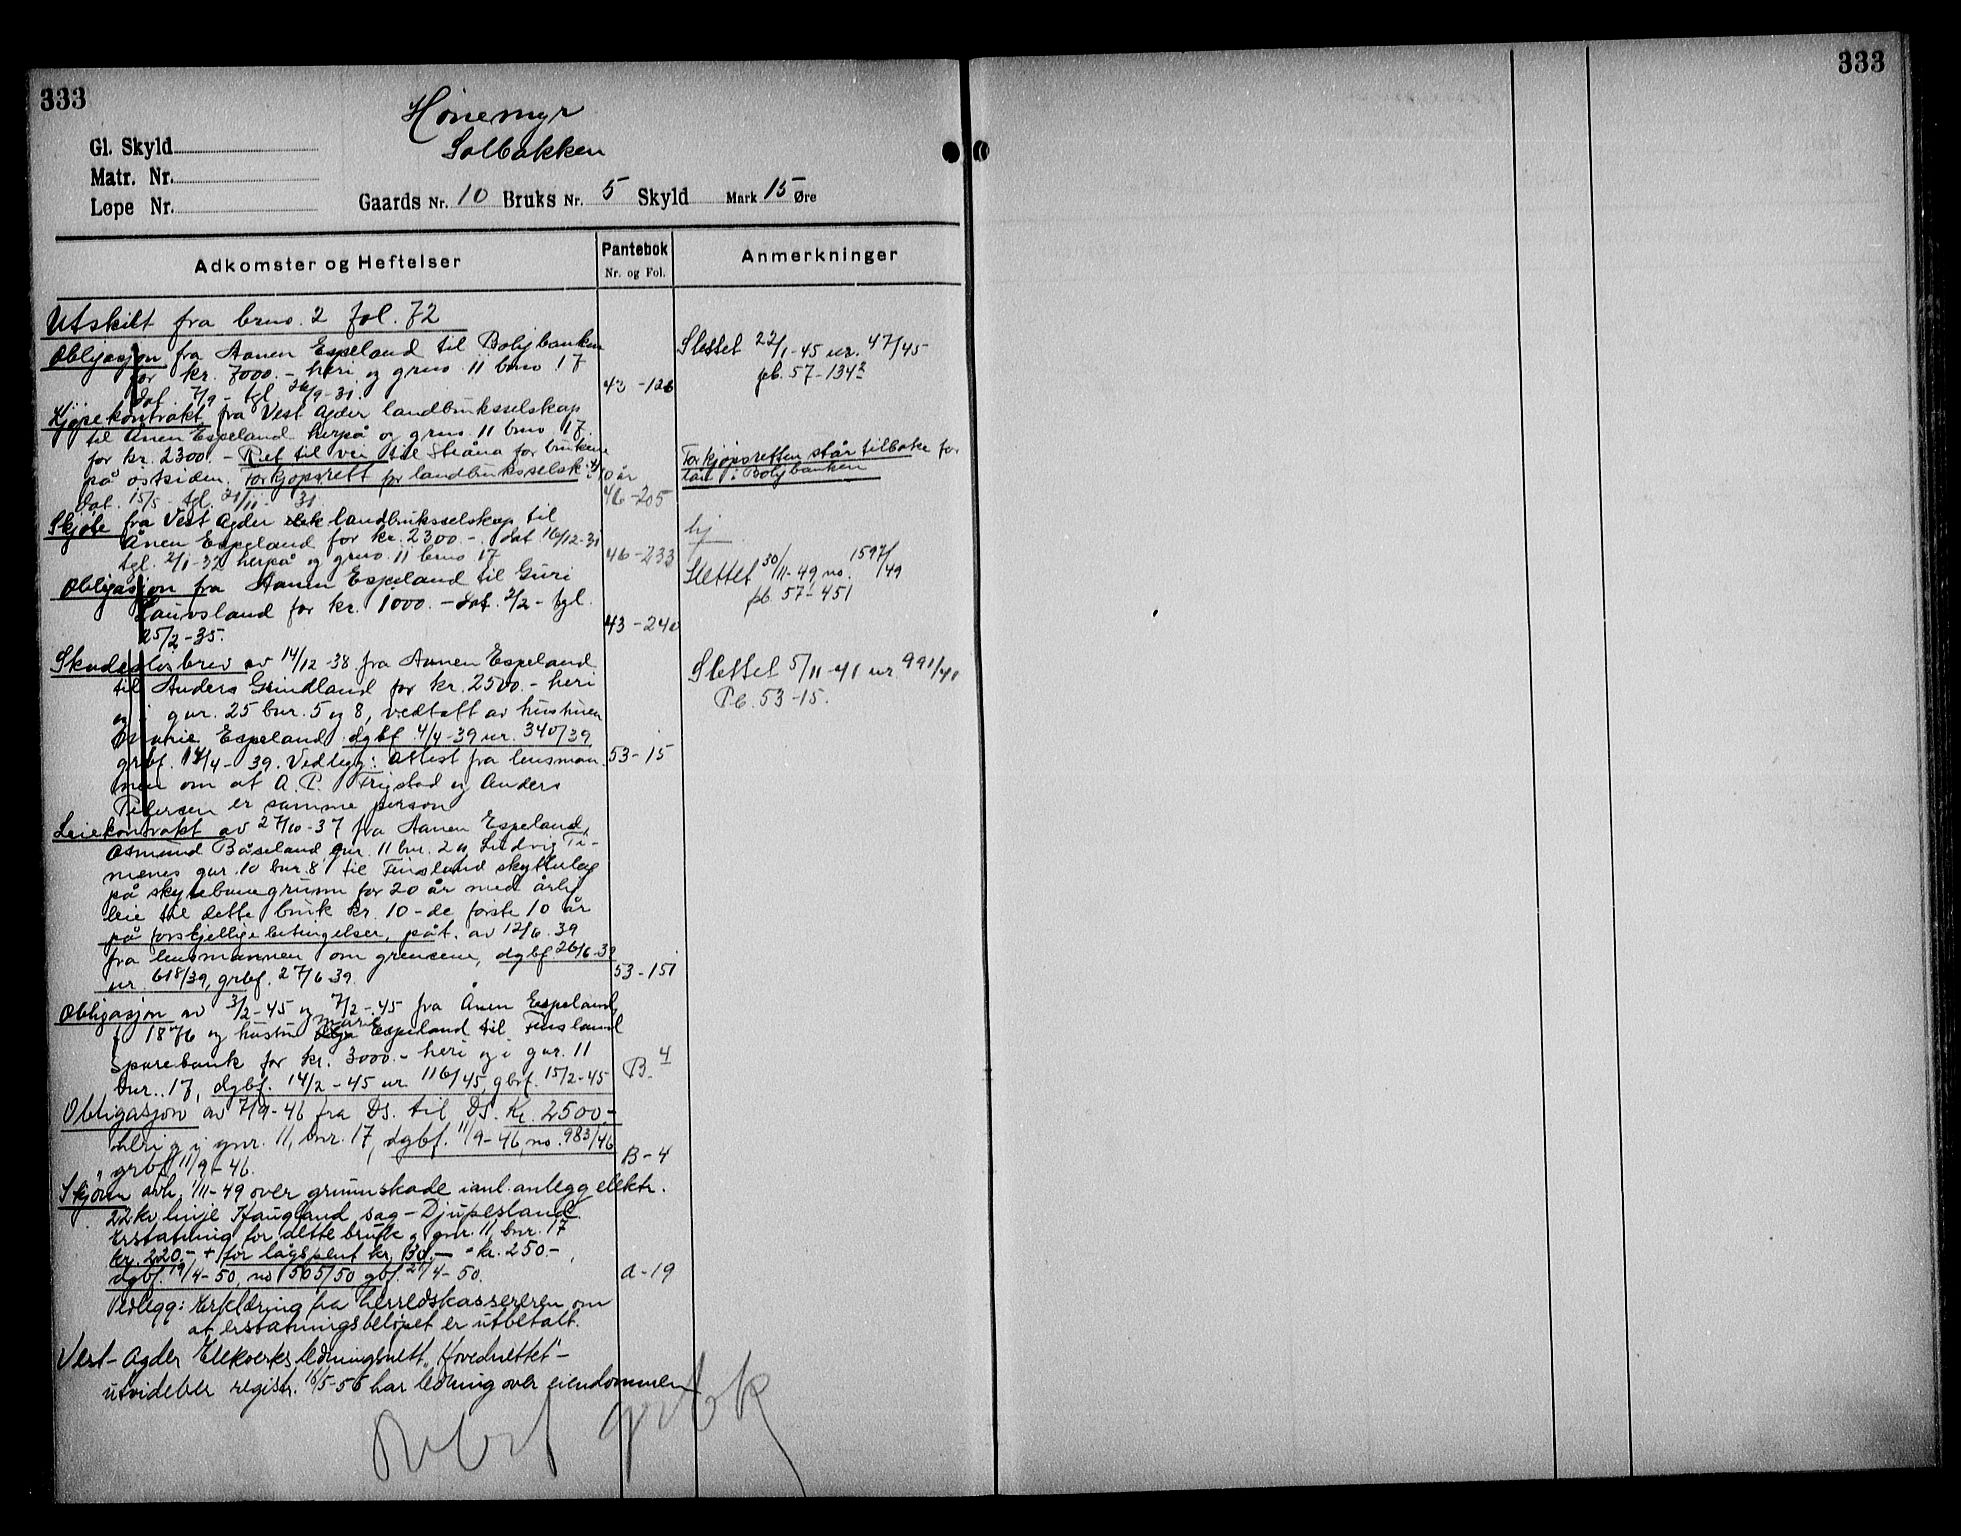 333
333
Hönemyr
Solbakken
Gl. Skyld
Matr. Nr.
Løpe Nr.
Gaards Nr. 10 Bruks Nr. 5 Skyld Mark 15 Øre
Adkomster og Heftelser
Pantebok
Nr. og Fol.
Anmerkninger
Utskilt fra brno. 2 fol. 72
Obligasjon fra Aanen Espeland til Boligbanken
for kr. 7000.- heri og grno. 11 brno 17
Dat. 7/9 - tgl. 26/9-31.
43 - 126
Slettet 22/1-45 nr. 47/45
pb. 57-134
Kjøpekontrakt fra Vest Agder landbruksselskap
til Ånen Espeland herpå og grno. 11 brno 17.
for kr. 2300. - Ret til vei til for brukene
på østsiden. Forkjøpsrett for landbruksselsk. i 40 år
Dat. 15/5 - tgl. 21/11 - 31
46-205
Forkjøpsretten står tilbake for
lån i Boligbanken
Skjøte fra Vest Agder landbruksselskap til
Ånen Espeland for kr. 2300 -. dat 16/12-31
tgl. 2/1-32 herpå og grno. 11 brno 17
46-233
hj
Obligasjon fra Aanen Espeland til Guri
Lauvsland for kr. 1000. - dat. 2/2 - tgl.
25/2-35.
43-240
Slettet 30/11-49, no. 1597/49
pb. 57-451
Skadesløsbrev av 14/12-38 fra Aanen Espeland
til Anders Grindland for kr. 2500.- heri
og i gnr. 25 bnr. 5 og 8, vedtatt av hustruen
Marie Espeland. dgbf. 4/4-39 nr. 340/39
grbf. 14/4-39. Vedlegg: Attest fra lensman-
nen om at A. P. Frigstad og Anders
Pedersen er samme person
53-15
Slettet 5/11-41 nr. 991/41
Pb. 53-15.
Leiekontrakt av 27/10-37 fra Aanen Espeland,
Osmund Båseland gnr. 11 bnr. 2 og Ludvig Ti-
menes gnr. 10 bnr. 8 til Finsland skytterlag
på skytebanegrunn for 20 år med årlig
leie til dette bruk kr. 10 - de første 10 år
på forskjellige betingelser, påt. av 12/6. 39
fra lensmannen om grensene, dgbf 26/6-39
nr. 618/39, grbf. 27/6 39.
53-151
Obligasjon av 3/2-45 og 7/2-45 fra Ånen Espeland,
f. 1876 og hustru Marie Espeland til Finsland
Sparebank for kr. 3000.- heri og i gnr. 11
bnr. 17, dgbf. 14/2-45 nr 116/45, gbrf. 15/2-45
B. 4
Obligasjon av 7/9-46 fra Ds. til Ds. Kr. 2500,-
heri og i gnr. 11, bnr. 17, dgbf. 11/9-46, no. 983/46
grbf 11/9-46.
B-4
Skjønn avh. 1/11-49 over grunnskade i anl. anlegg elektr.
22 kv. linje Haugland sag - Djupesland.
Erstatning for dette bruk og gnr. 11, bnr. 17
kr. 220.- + for lågspent kr. 30.- = kr. 250.-
dgbf. 19/4-50, no 565/50 gbf. 21/4-50.
a-19
Vedlegg: Erklæring fra herredskassereren om
at erstatningsbeløpet er utbetalt.
Vest-Agder Elekverks ledningsnett, "Hovednettet"-
utvidelser registr. 16/5-56 har ledning over eiendommen